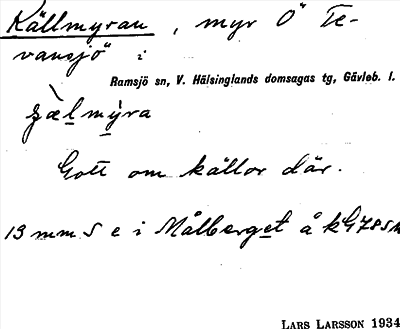 Källmyran, myr Ö Te-
vansjö i
Ramsjö sn, V. Hälsinglands domsagas tg, Gävleb. l.
Gott om källor där.
13 mm S e i Målberget å kG
LARS LARSSON 1934